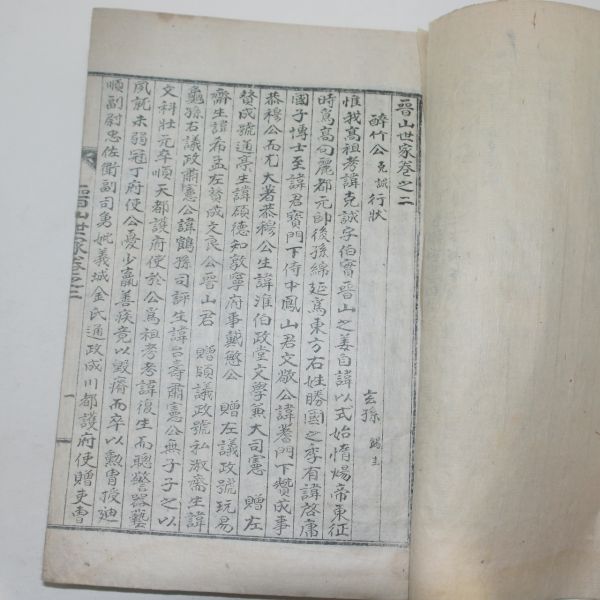 晉山世家卷之二
醉竹公 克誠 行狀
玄孫
惟我高祖考諱克誠字伯實晉山之姜自諱以式始惰煬帝東征
時爲高句麗都元帥後孫綿延爲東方右姓勝國之季有諱啓庸
國子博士至諱君寶門下侍中鳳山君文敬公諱蓍門下贊成事
恭穆公而尤大著恭穆公生諱淮伯政堂文學兼大司憲 贈左
贊成號通亭生諱碩德知敦寧府事戴慜公 贈左議政號玩易
齋生諱希孟左贊成文良公晉山君 贈領議政號私淑齋生諱
龜孫右議政肅憲公諱鶴孫司評生諱台壽肅憲公無子子之以
文科壯元卒順天都護府使於公爲祖考考諱復生而聰警器藝
夙就未弱冠丁府使公憂少羸善疾竟以毀瘠而卒以勳胄授迪
順副尉忠佐衛副司勇妣義城金氏通政成川都護府使贈吏曹
晉山世家卷之二 一